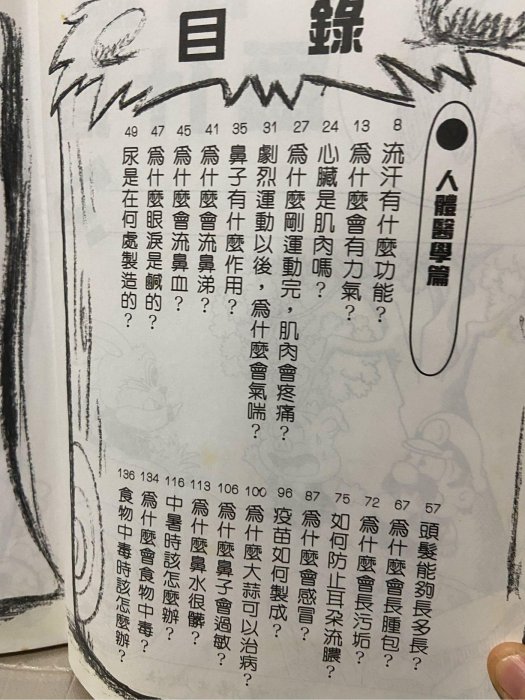 目錄
●人體醫學篇
8 流汗有什麼功能？
13 為什麼會有力氣？
24 心臟是肌肉嗎？
27 為什麼剛運動完，肌肉會疼痛？
31 劇烈運動以後，為什麼會氣喘？
35 鼻子有什麼作用？
41 為什麼會流鼻涕？
45 為什麼會流鼻血？
47 為什麼眼淚是鹹的？
49 尿是在何處製造的？
57 頭髮能夠長多長？
67 為什麼會長腫包？
72 為什麼會長污垢？
75 如何防止耳朵流膿？
87 為什麼會感冒？
96 疫苗如何製成？
100 為什麼大蒜可以治病？
106 為什麼鼻子會過敏？
113 為什麼鼻水很髒？
116 中暑時該怎麼辦？
134 為什麼會食物中毒？
136 食物中毒時該怎麼辦？